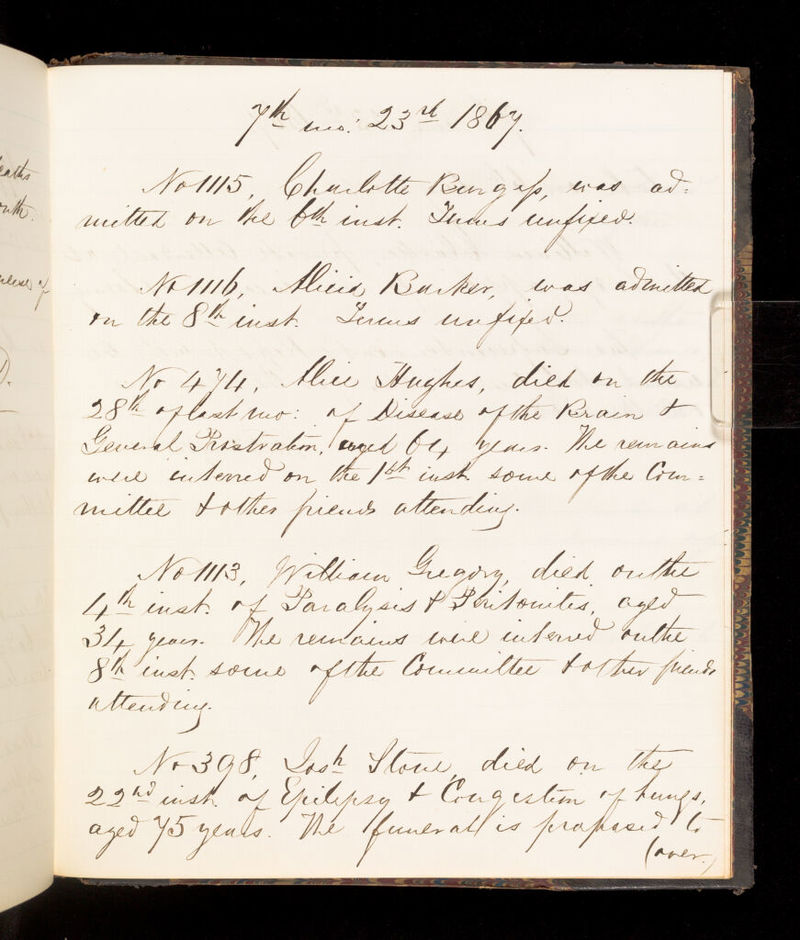 7th mo: 23rd 1867.
No 1115, Charlotte Burgess, was ad=
mitted on the 6th inst. Terms unfixed.
No 1116, Alicia Barker, was admitted
on the 8th inst. Terms unfixed.
No 474, Alice Hughes, died on the
28th of last mo: of Disease of the Brain &
General Prostration, aged 64 years. The remains
were interred on the 1st inst. some of the Com=
mittee & other friends attending.
No 1113, William Gregory, died on the
4th inst. of Paralysis & Peritonitis, aged
34 years. The remains were interred on the
8th inst. some of the Committee & other friends
attending.
No 398, Josh Stone, died on the
22nd inst. of Epilepsy & Congestion of Lungs,
aged 75 years. The funeral is proposed to
(over.)